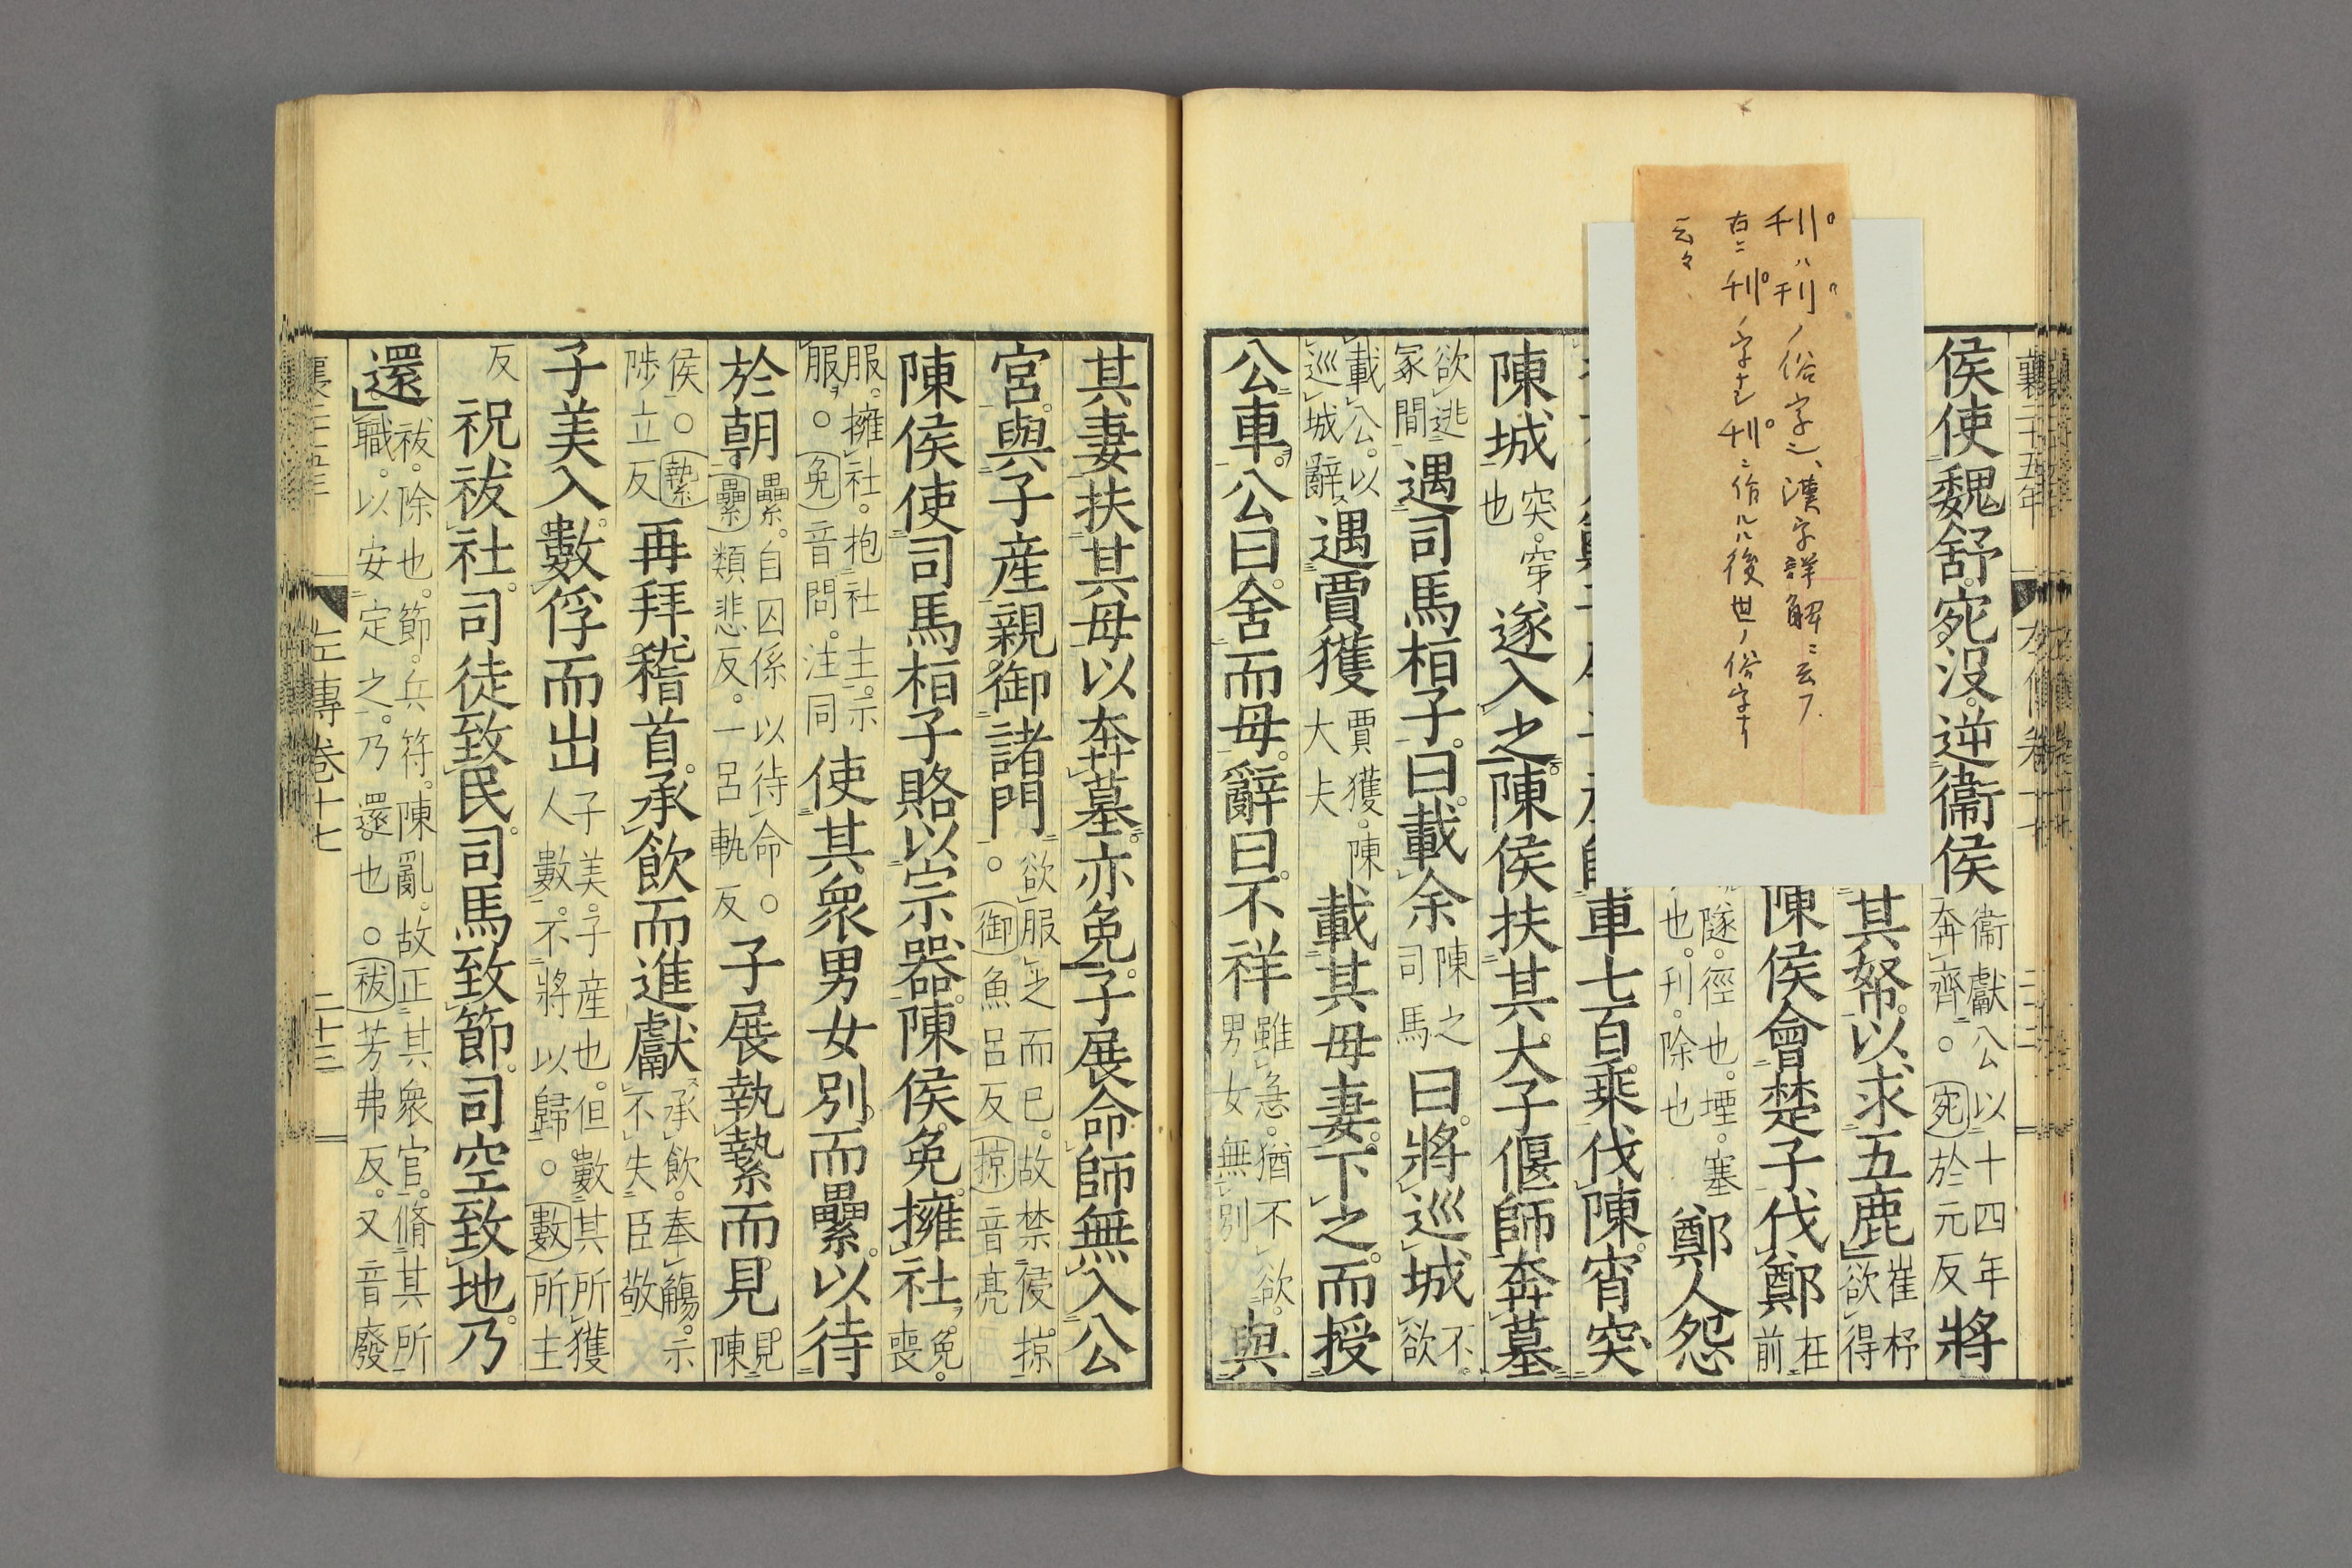 襄二十五年
侯使魏舒宛沒逆衞侯衞獻公以十四年奔齊。○宛於元反將
其帑以求五鹿崔杼欲得
陳侯會楚子伐鄭在前
隧徑也堙塞也刊除也鄭人怨
車七百乘伐陳宵突
陳城突穿也遂入之陳侯扶其大子偃師奔墓
欲逃冢間遇司馬桓子曰載余陳之司馬曰將巡城不欲
載公以巡城辭遇賈獲賈獲陳大夫載其母妻下之而授
公車公曰舍而母辭曰不祥雖急猶不欲男女無別與
刋ハ刊ノ俗字
漢字詳解ニ云フ
古ニ
字ナシ
ニ作ルハ後世ノ俗字ナリ
云々
其妻扶其母以奔墓亦免子展命師無入公
宮與子産親御諸門欲服之而已故禁侵掠。○御魚呂反掠音亮
陳侯使司馬桓子賂以宗器陳侯免擁社免喪
服擁社抱社主示服○免音問注同使其衆男女別而纍以待
於朝纍自囚係以待命○纍類悲反。一呂軌反子展執縶而見見陳
侯。○縶陟立反再拜稽首承飲而進獻承飲奉觴示不失臣敬
子美入數俘而出子美子産也但數其所獲人數不將以歸。○數所主
反祝祓社司徒致民司馬致節司空致地乃
還祓除也節兵符陳亂故正其衆官脩其所職以安定之乃還也。○祓芳弗反又音廢
襄二十五年 左傳卷十七 二十三